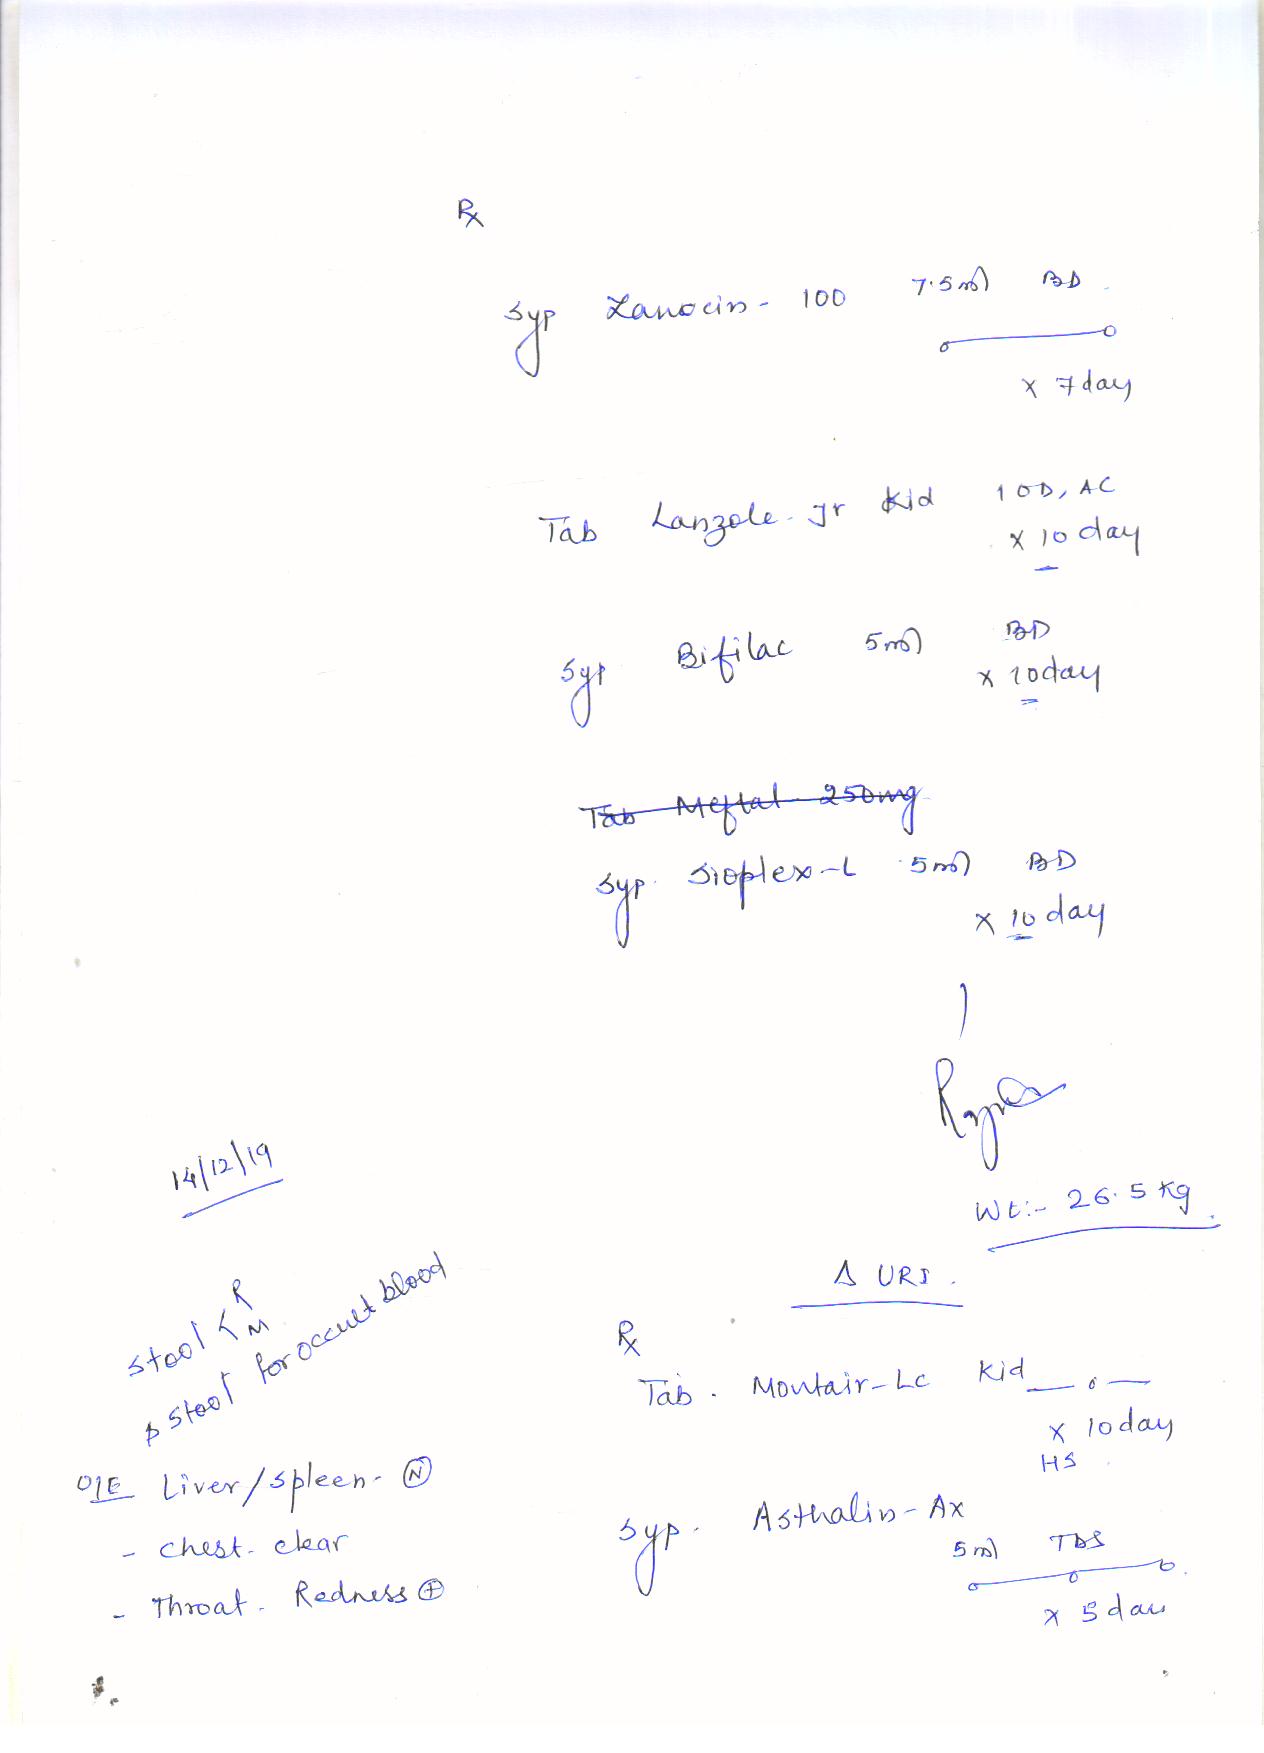 Rx
Syp Zanocin - 100 7.5ml BD
x 7 day
Tab Lanzole - Jr Kid 1 OD, AC
x 10 day
Syp Bifilac 5ml BD
x 10 day
Tab Meftal 250mg
Syp. Sioplex-L 5ml BD
x 10 day
14/12/19
Wt:- 26.5 Kg.
Stool < R
M
stool for occult blood
O/E Liver/spleen - N
- chest - clear
- Throat - Redness +
Δ URI.
Rx
Tab. Montair-Lc Kid
x 10 day
HS
Syp. Asthalin - Ax
5ml TDS
x 5 day